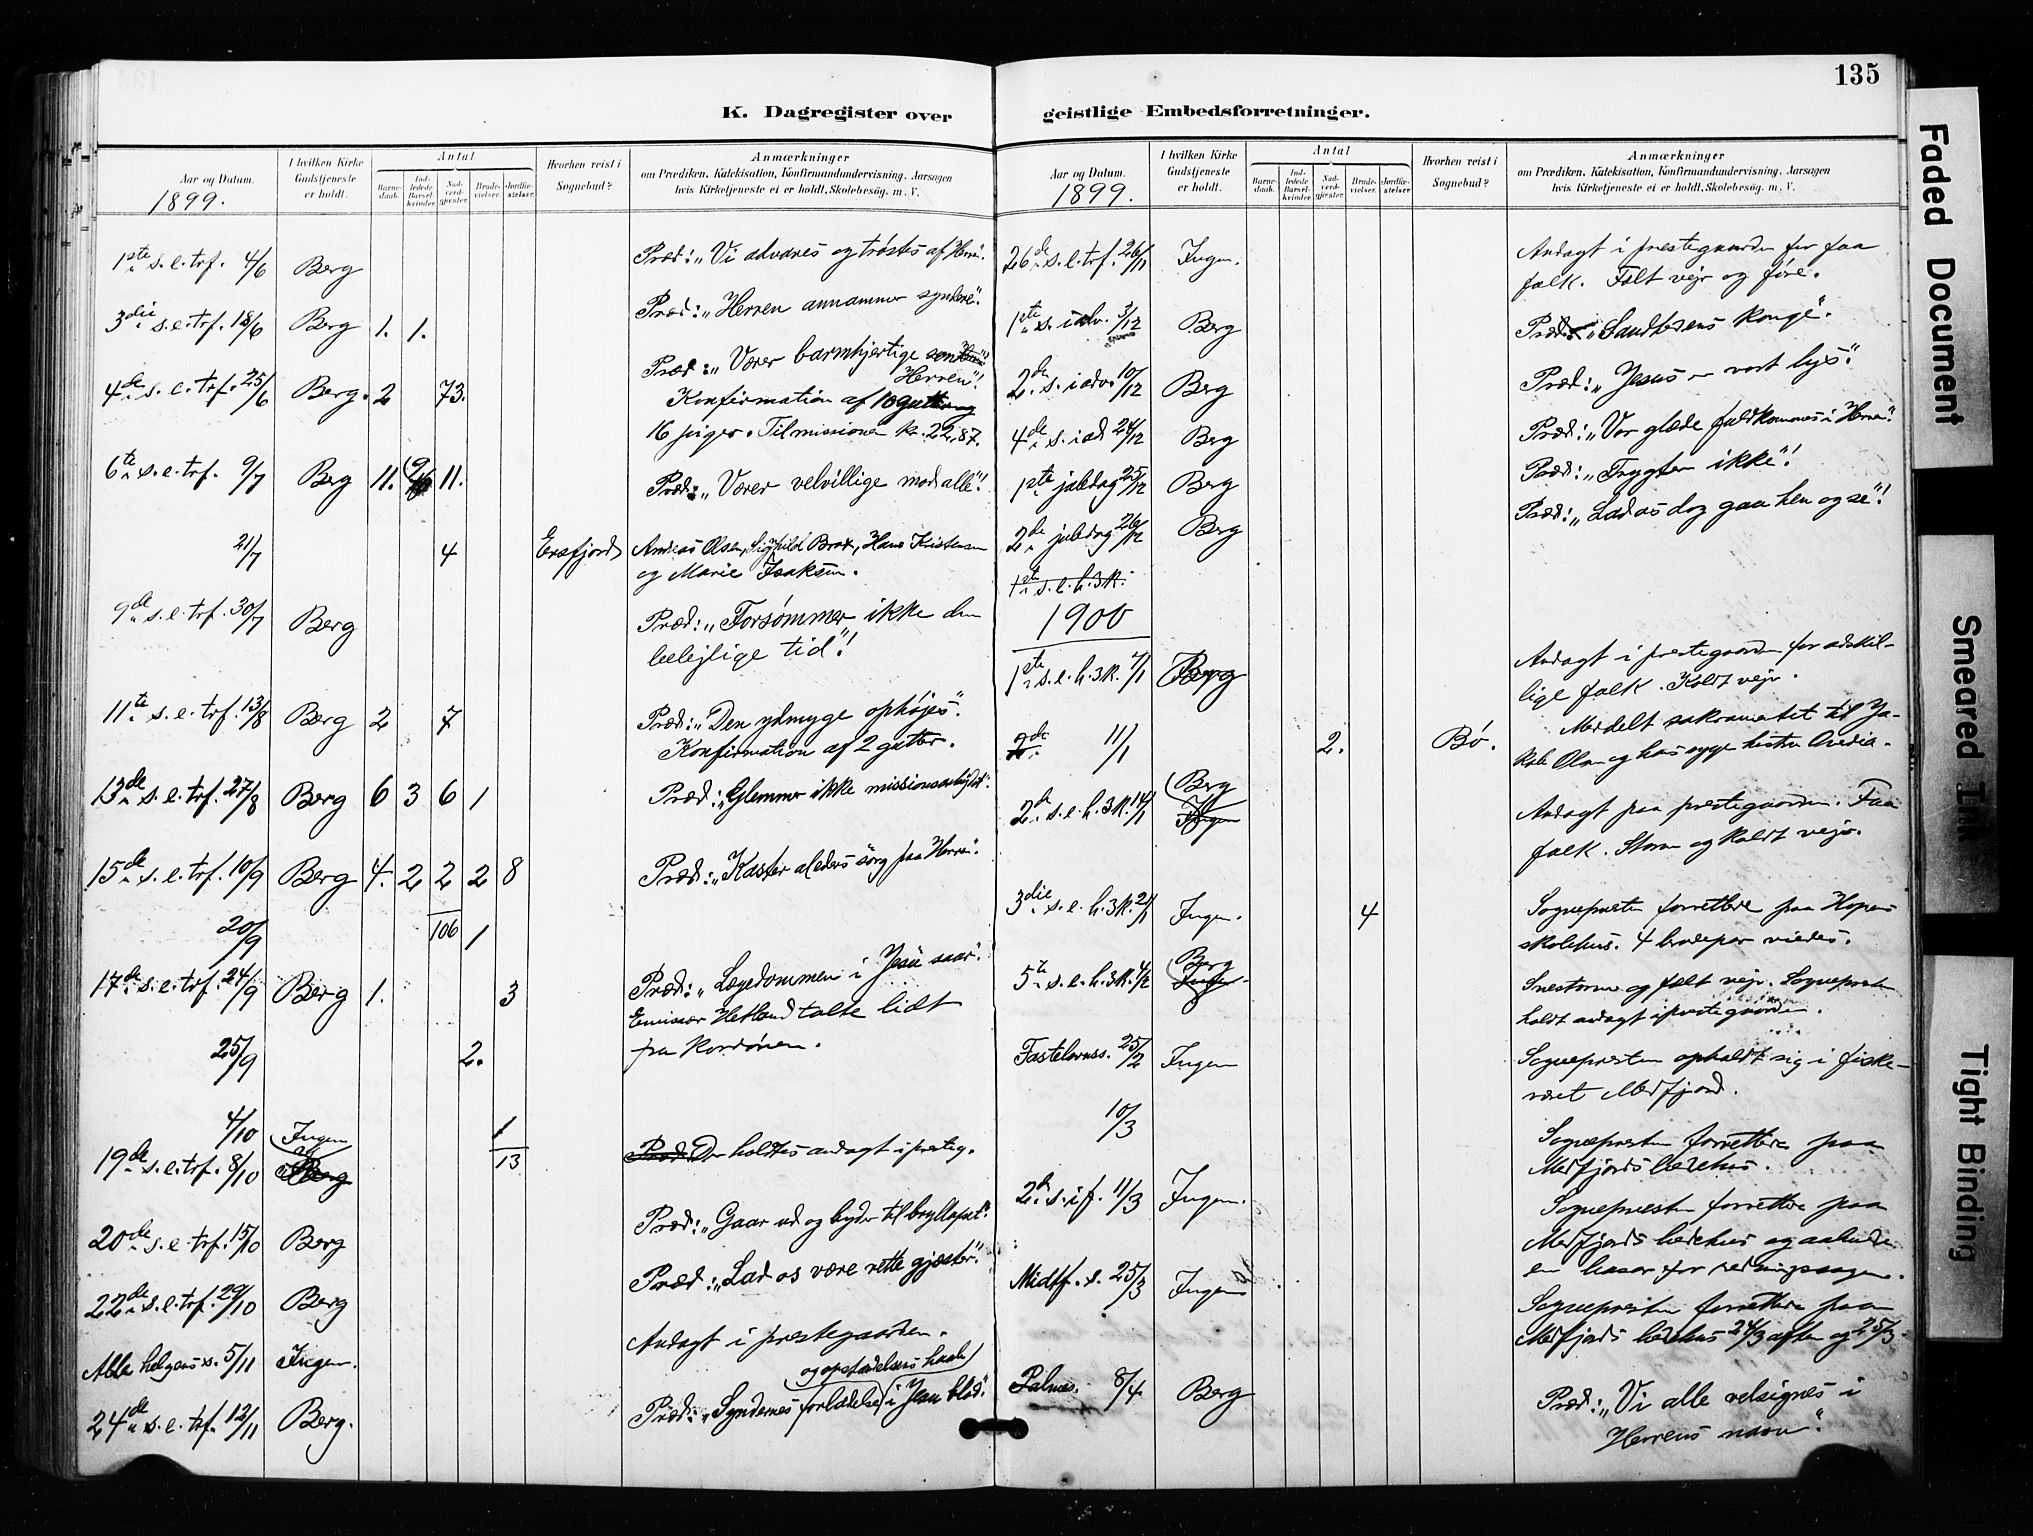 135
K. Dagregister over geistlige Embedsforretninger.
Aar og Datum.
I hvilken Kirke Gudstjeneste er holdt.
Antal
Barne-daab.
Ind-ledede Barsel-kvinder.
Nad-verd-gjester.
Brude-vielser.
Jordfæ-stelser.
Hvorhen reist i Sognebud?
Anmærkninger
om Prædiken, Katekisation, Konfirmandundervisning, Aarsagen
hvis Kirketjeneste ei er holdt, Skolebesøg. m. V.
1899.
1ste s.e.trf. 4/6 Berg Præd: "Vi advares og trøstes af Herren".
3die s.e.trf. 18/6 Berg 1. 1. Præd: "Herren annammer syndere".
4de s.e.trf. 25/6 Berg. 2 73. Præd: "Værer barmhjertige som
Herren"!
Konfirmation af 10 gutter og
16 piger. Til missionen kr. 22,87.
6te s.e.trf. 9/7 Berg 11. 9 11. Præd: "Værer velvillige mod alle"!
21/7 4 Ersfjord Andreas Olsen, Brox, Hans Kristensen
og Marie Isaksen.
9de s.e.trf. 30/7 Berg Præd: "Forsømmer ikke den
belejlige tid"!
11te s.e.trf. 13/8 Berg 2 7 Præd: "Den ydmyge ophøjes".
Konfirmation af 2 gutter.
13de s.e.trf. 27/8 Berg 6 3 6 1 Præd: "Glemmer ikke missionsarbejdet".
15de s.e.trf. 10/9 Berg 4. 2 2 2 8 Præd: "Kaster al eders sorg paa Herren".
20/9 106 1
17de s.e.trf. 24/9 Berg 1. 3 Præd: "Lægedommen i Jesu saar".
Emissær Hetland talte lidt
fra
25/9 2.
4/10 1
19de s.e.trf. 8/10 Ingen Berg 13 Præd: Der holdtes andagt i presteg.
20de s.e.trf. 15/10 Berg Præd: "Gaar ud og byder til bryllupet".
22de s.e.trf. 29/10 Berg Præd: "Lad os være rette gjæster".
Alle helgens s. 5/11 Ingen. Andagt i prestegaarden.
og opstandelsens haab
24de s.e.trf. 12/11 Berg. Præd: "Syndernes forladelse i Jesu blod".
Aar og Datum.
I hvilken Kirke Gudstjeneste er holdt.
Antal
Barne-daab.
Ind-ledede Barsel-kvinder.
Nad-verd-gjester.
Brude-vielser.
Jordfæ-stelser.
Hvorhen reist i Sognebud?
Anmærkninger
om Prædiken, Katekisation, Konfirmandundervisning, Aarsagen
hvis Kirketjeneste ei er holdt, Skolebesøg. m. V.
1899.
26de s.e.trf. 26/11 Ingen. Andagt i prestegaarden for faa
folk. Fælt vejr og føre.
1ste s. i adv. 3/12 Berg Præd: "Sandhedens konge".
2de s. i adv. 10/12 Berg Præd: "Jesus er vort lys".
4de s. i ad. 24/12 Berg Præd: "Vor glæde fuldkommes i Herren".
1ste juledag 25/12 Berg Præd: "Frygter ikke"!
2de juledag 26/12 Berg Præd: "Lad os dog gaa hen og se"!
1ste s.e.h.3k.
1900
1ste s.e.h.3k. 7/1 Berg Andagt i prestegaarden for adskil-
lige folk. Koldt vejr.
2de 11/1 2. Bø. Meddelt sakramentet til Ja-
kob Olsen og hans syge hustru
2de s.e.h.3k. 14/1 Berg Ingen Andagt paa prestegaarden. Faa
folk. Storm og koldt vejr.
3die s.e.h.3k. 21/1 Ingen. 4 Sognepresten forrettede paa Hopens
skolehus. 4 brudepar viedes.
5te s.e.h.3k. 4/2 Berg Ingen Snestorm og fælt vejr. Sognepresten
holdt andagt i prestegaarden.
Fastelavnss. 25/2 Ingen Sognepresten opholdt sig i fiske-
været Mefjord.
10/3 Sognepresten forrettede paa
Mefjords bedehus.
2den s. i f. 11/3 Ingen. Sognepresten forrettede paa
Mefjords bedehus og aabnede
en basar for redningssagen.
Midtf. s. 25/3 Ingen Sognepresten forrettede paa
Mefjords bedehus 24/3 aften og 25/3.
Palmes. 8/4 Berg Præd: "Vi alle velsignes i
Herrens navn".
Faded Document
Smeared Ink
Tight Binding